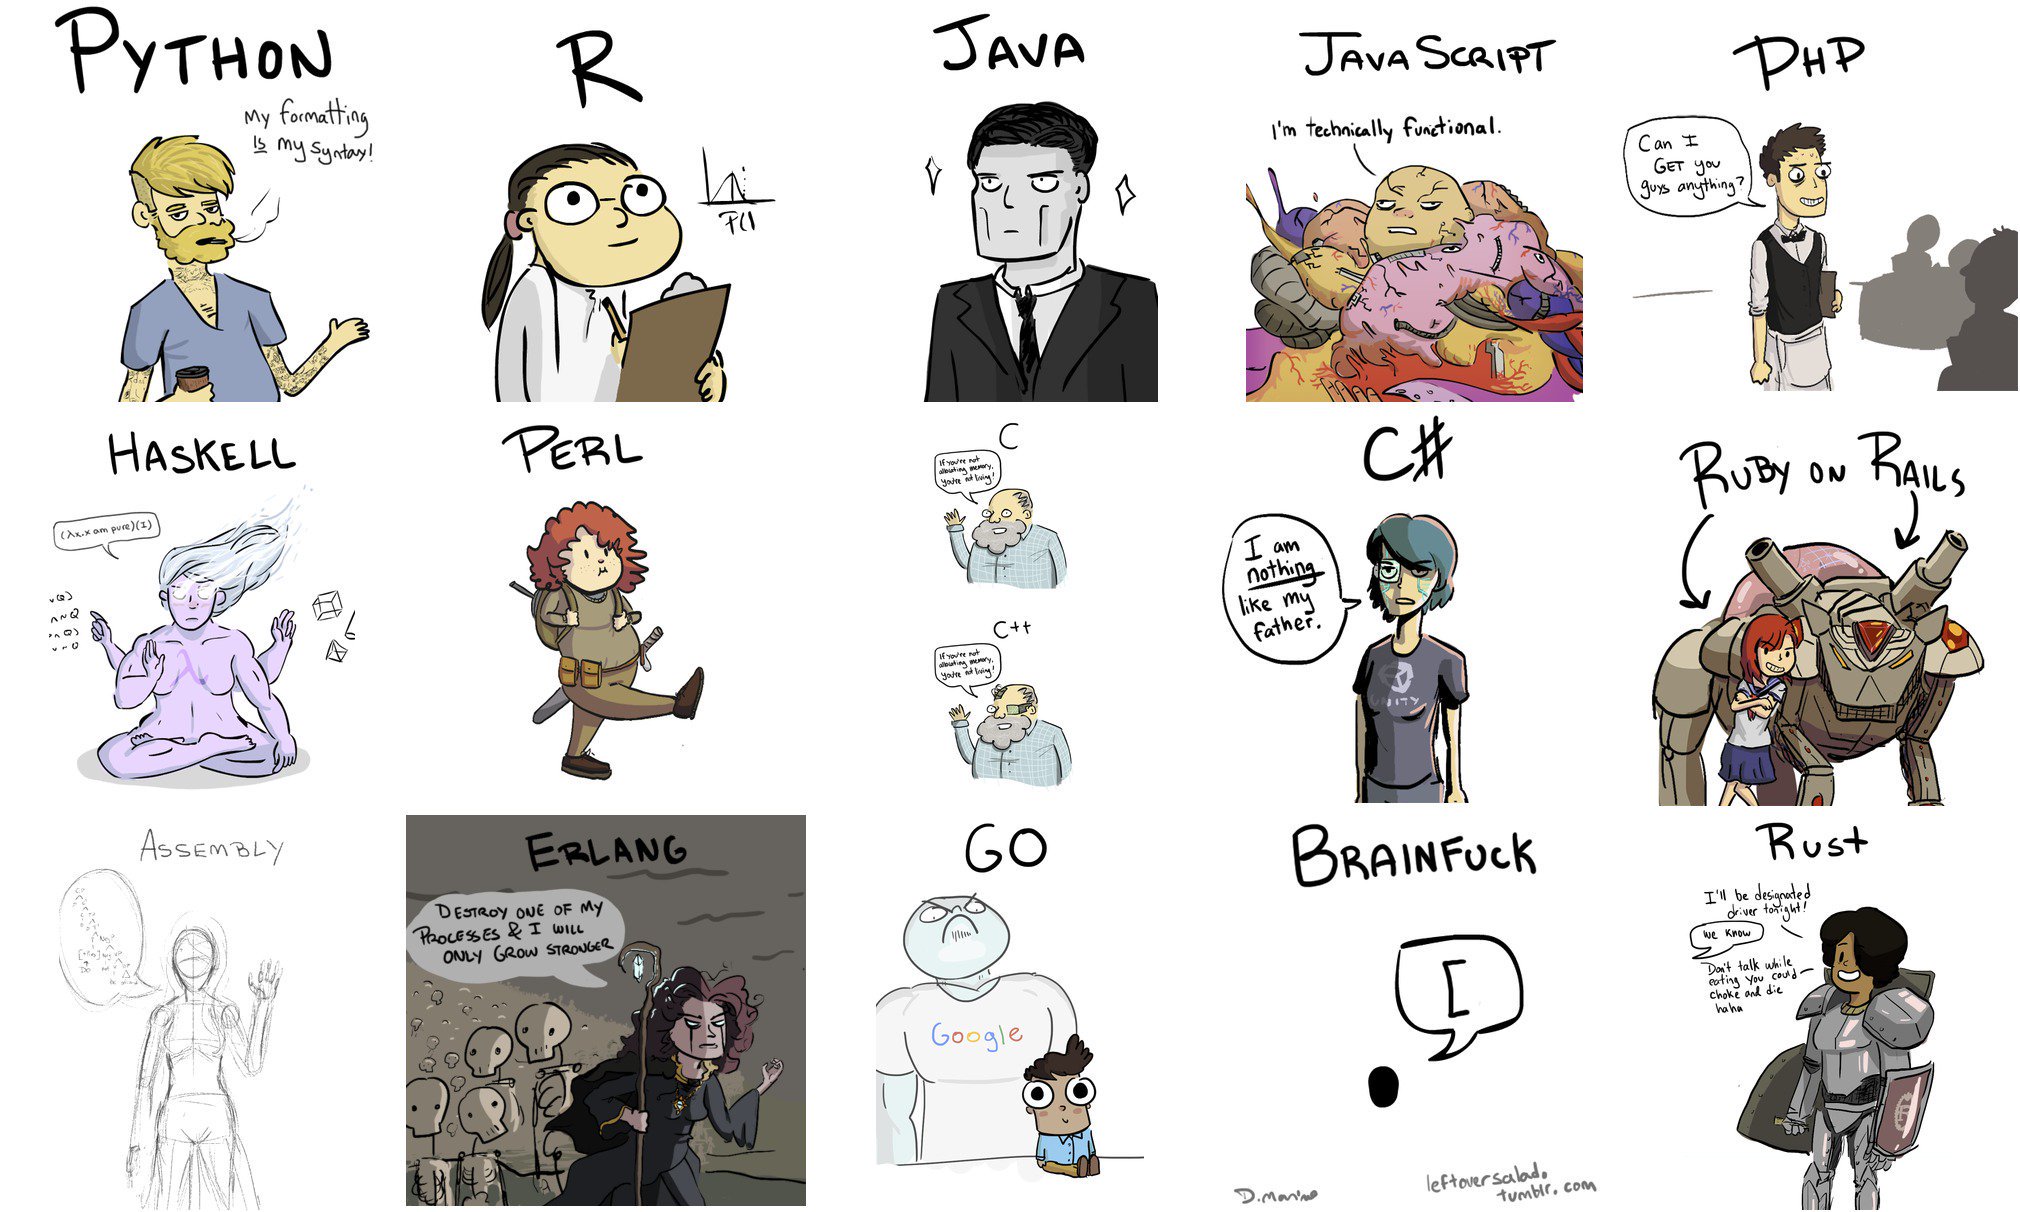 PYTHON
My formatting
is my syntax!
R
P(1
JAVA
JAVASCRIPT
I'm technically functional.
PHP
Can I
GET you
guys anything?
HASKELL
(λx.x am pure)(I)
PERL
C
If you're not
allocating memory,
you're not living!
C++
If you're not
allocating memory,
you're not living!
C#
I am
nothing
like my
father.
UNITY
RUBY ON RAILS
ASSEMBLY
ERLANG
DESTROY ONE OF MY
PROCESSES & I WILL
ONLY GROW STRONGER
GO
Google
BRAINFUCK
[
D.marino
leftoversalad.
tumblr.com
RUST
I'll be designated
driver tonight!
we know
Don't talk while
eating you could
choke and die
haha
R